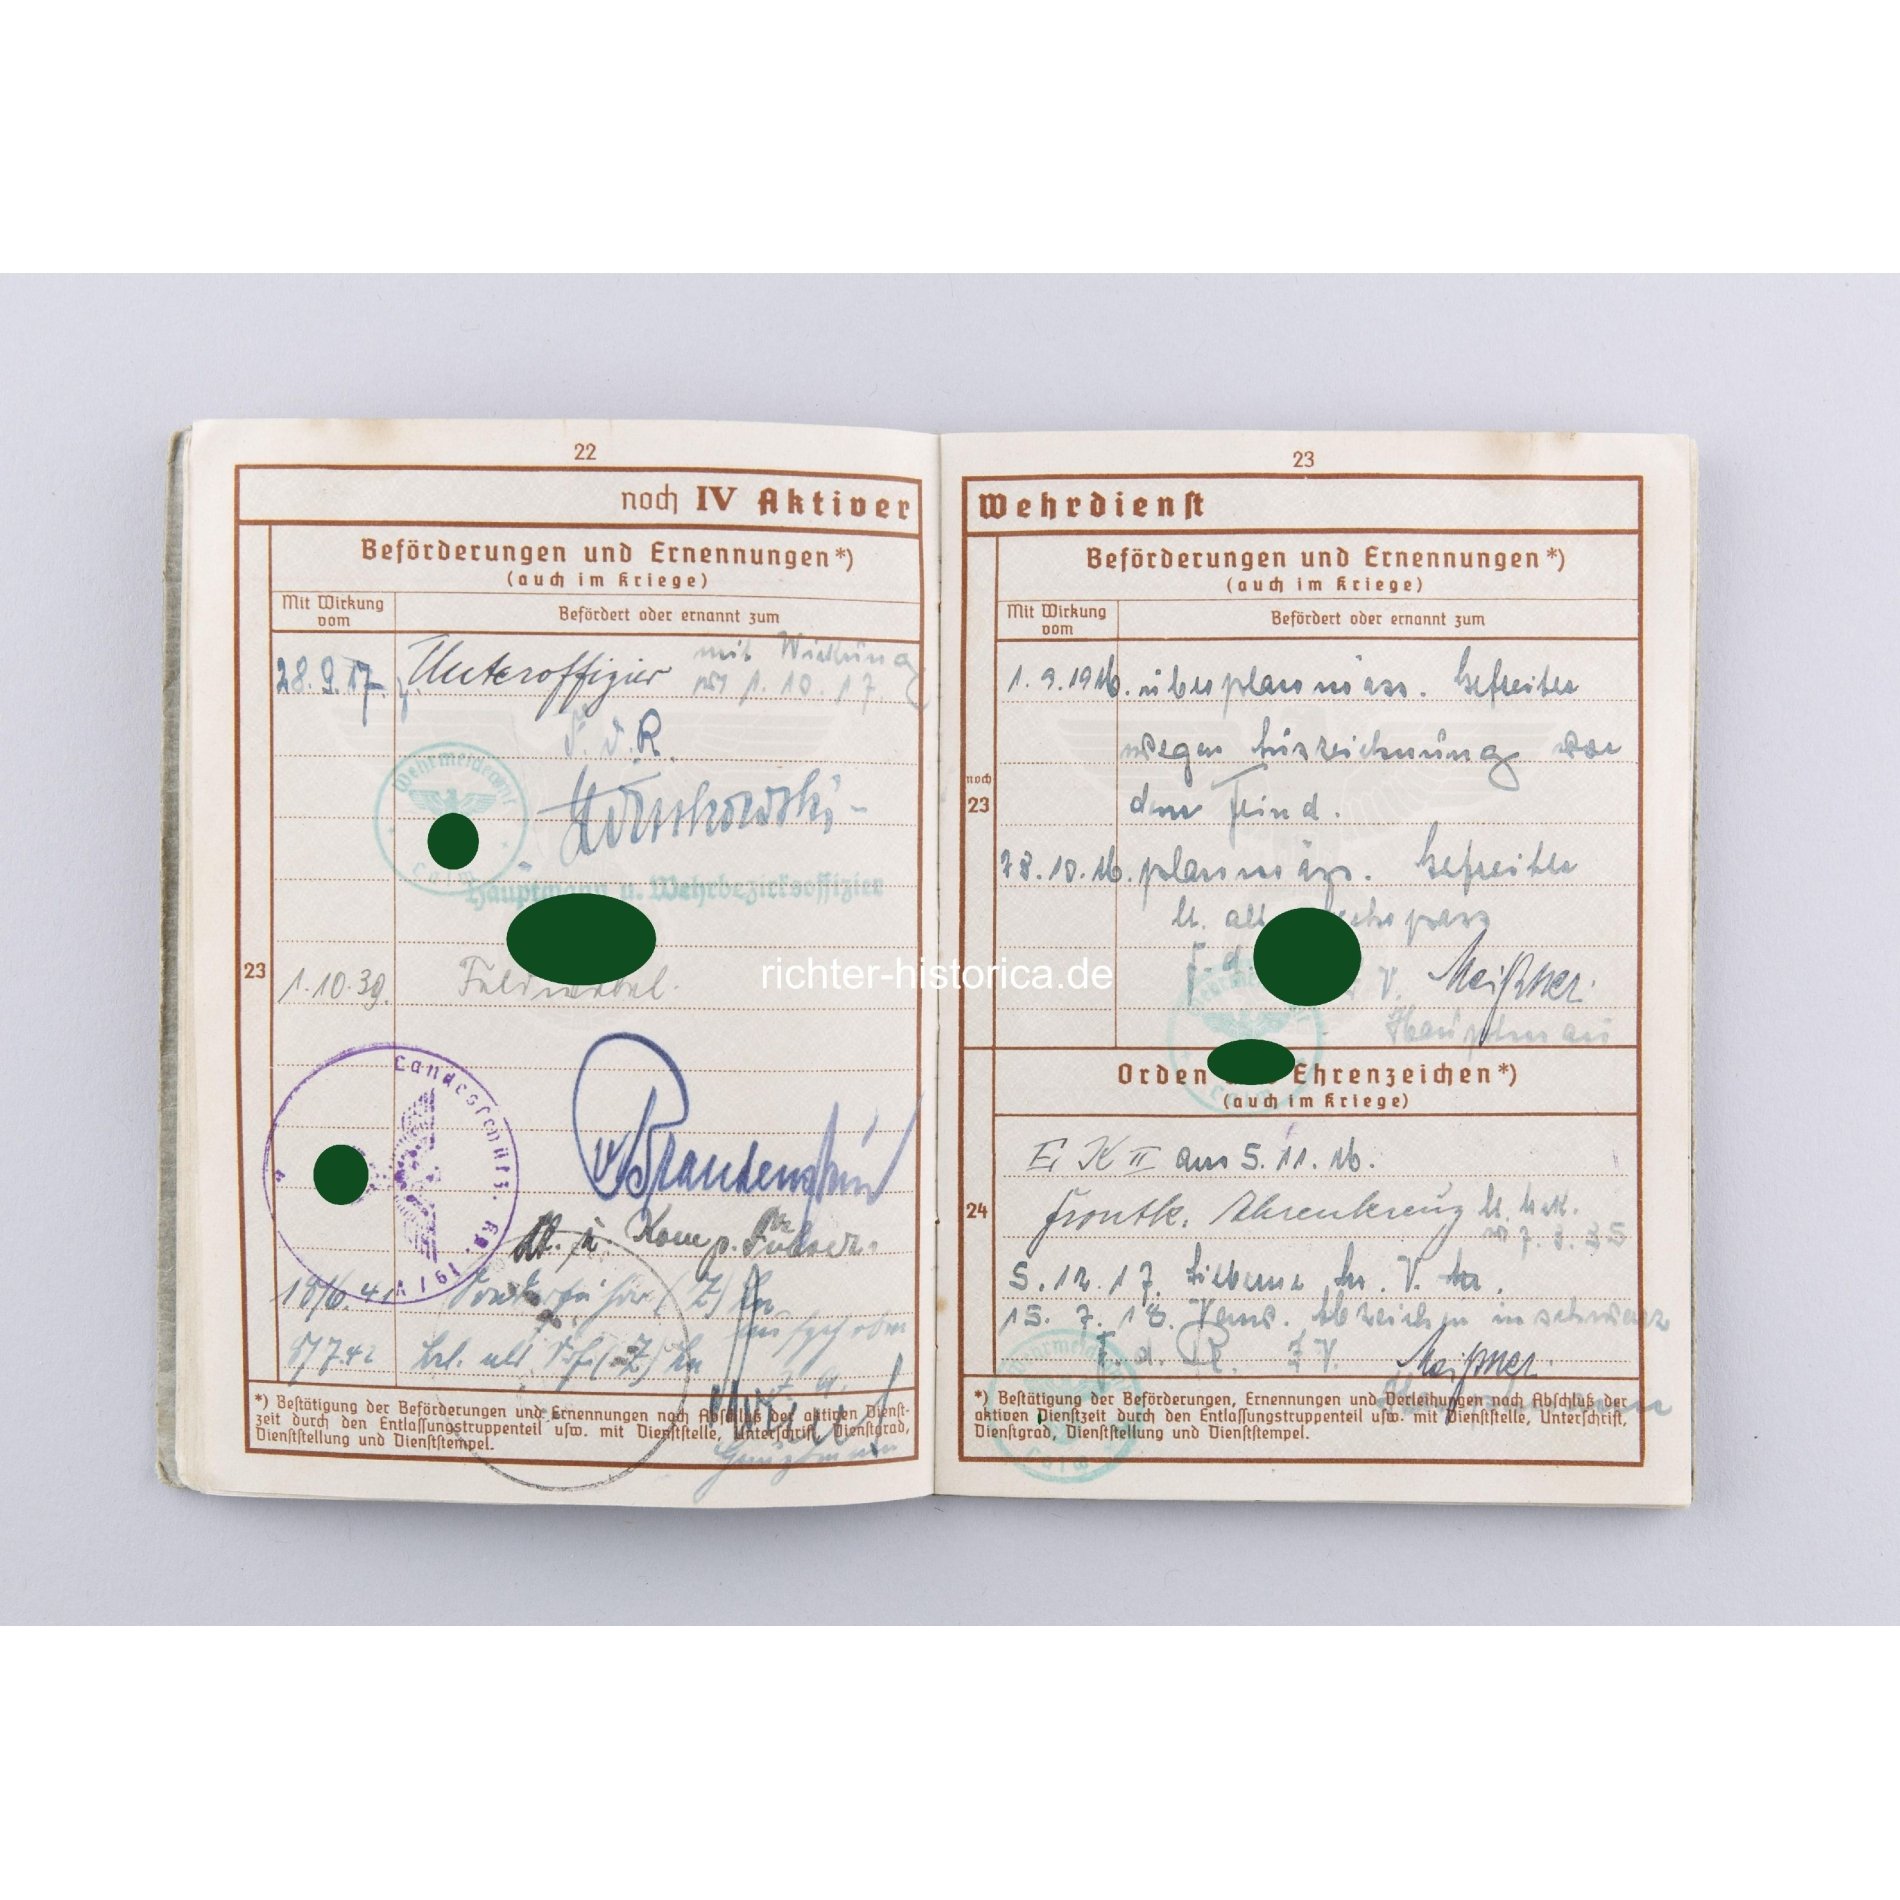 22
noch IV Aktiver
Beförderungen und Ernennungen*)
(auch im Kriege)
Mit Wirkung vom
Befördert oder ernannt zum
28.9.17
Unteroffizier
mit Wirkung
1.10.17.
F. d. R.
Wehrmeldeamt
Calw
Hauptmann u. Wehrbezirksoffizier
23
1.10.39.
Feldwebel.
Landesschütz. Kp.
v Brandenstein
Lt. u. Komp. Führer.
18/6.41
Sonderführer (Z)
7.42
(Z)
Hauptmann
*) Bestätigung der Beförderungen und Ernennungen nach Abschluß der aktiven Dienst-
zeit durch den Entlassungstruppenteil usw. mit Dienststelle, Unterschrift, Dienstgrad,
Dienststellung und Dienststempel.
23
Wehrdienst
Beförderungen und Ernennungen*)
(auch im Kriege)
Mit Wirkung vom
Befördert oder ernannt zum
1.9.1916. überplanmäss. Gefreiter
wegen Auszeichnung vor
noch
23
dem Feind.
28.10.16. planmäss. Gefreiter
F. d. R. V. Meißner
Hauptmann
Orden Ehrenzeichen*)
(auch im Kriege)
24
E K II am 5.11.16.
Frontk. Ehrenkreuz
5.12.17. Silberne
15.7.18. Verw. Abzeichen in schwarz
F. d. R. Meißner
Hauptmann
Wehrmeldeamt
Calw
*) Bestätigung der Beförderungen, Ernennungen und Verleihungen nach Abschluß der
aktiven Dienstzeit durch den Entlassungstruppenteil usw. mit Dienststelle, Unterschrift,
Dienstgrad, Dienststellung und Dienststempel.
richter-historica.de